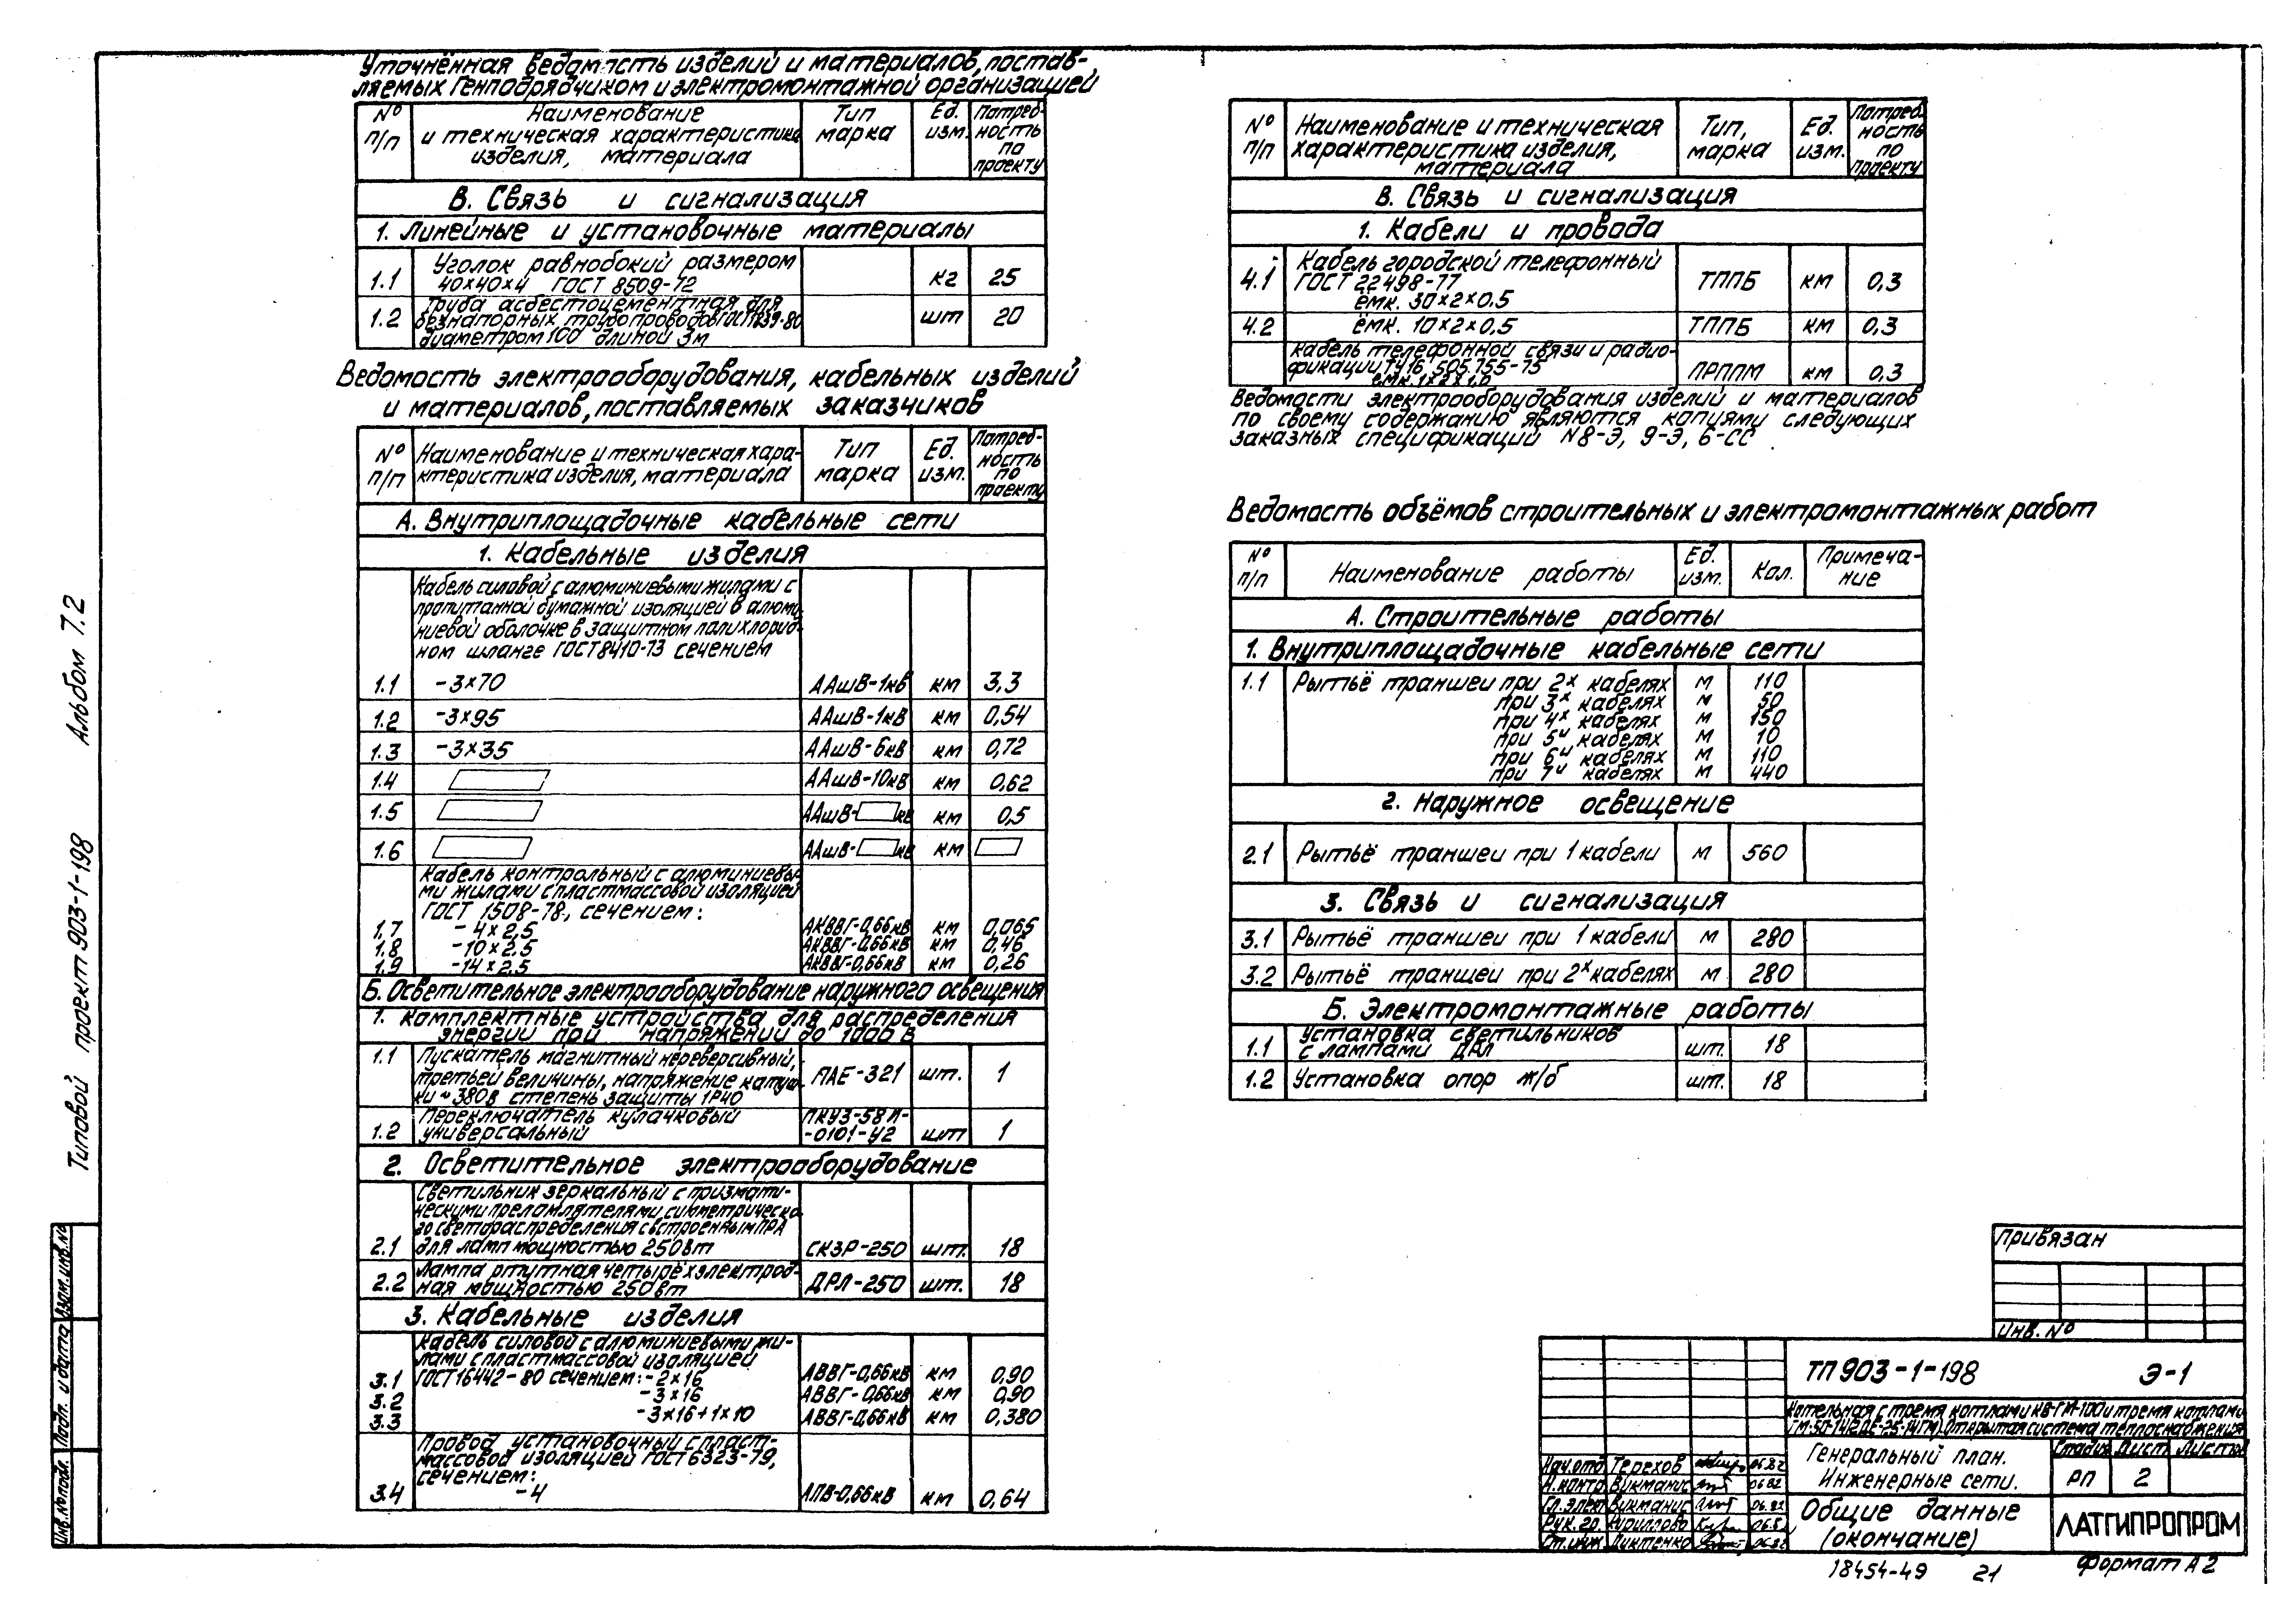 Уточнённая ведомость изделий и материалов, постав-
ляемых Генподрядчиком и электромонтажной организацией
№ п/п | Наименование и техническая характеристика изделия, материала | Тип марка | Ед. изм. | Потреб-ность по проекту
В. Связь и сигнализация
1. Линейные и установочные материалы
1.1 Уголок равнобокий размером
40×40×4 ГОСТ 8509-72 кг 25
Труба асбестоцементная для
1.2 безнапорных трубопроводов ГОСТ 1839-80 шт 20
диаметром 100 длиной 3м
Ведомость электрооборудования, кабельных изделий
и материалов, поставляемых заказчиков
№ п/п | Наименование и техническая хара-ктеристика изделия, материала | Тип марка | Ед. изм. | Потреб-ность по проекту
А. Внутриплощадочные кабельные сети
1. Кабельные изделия
Кабель силовой с алюминиевыми жилами с
пропитанной бумажной изоляцией в алюми-
ниевой оболочке в защитном палихлорид-
ном шланге ГОСТ 8410-73 сечением
1.1 -3×70 ААшВ-1кВ км 3,3
1.2 -3×95 ААшВ-1кВ км 0,54
1.3 -3×35 ААшВ-6кВ км 0,72
1.4 ААшВ-10кВ км 0,62
1.5 ААшВ- кВ км 0,5
1.6 ААшВ- кВ км
Кабель контрольный с алюминиевы-
ми жилами с пластмассовой изоляцией
ГОСТ 1508-78, сечением:
1.7 -4×2,5 АКВВГ-0,66кВ км 0,065
1.8 -10×2,5 АКВВГ-0,66кВ км 0,46
1.9 -14×2,5 АКВВГ-0,66кВ км 0,26
Б. Осветительное электрооборудование наружного освещения
1. Комплектные устройства для распределения
энергии при напряжении до 1000 В
1.1 Пускатель магнитный нереверсивный,
третьей величины, напряжение катуш- ПАЕ-321 шт. 1
ки ~380в степень защиты 1Р40
Переключатель кулачковый ПКУ3-58И-
1.2 универсальный -0101-У2 шт 1
2. Осветительное электрооборудование
Светильник зеркальный с призмати-
ческими преломлятелями, симметрическо-
го светораспределения с встроенным ПРА
2.1 для ламп мощностью 250вт СКЗР-250 шт. 18
Лампа ртутная четырёхэлектрод-
2.2 ная мощностью 250вт ДРЛ-250 шт. 18
3. Кабельные изделия
Кабель силовой с алюминиевыми жи-
лами с пластмассовой изоляцией
3.1 ГОСТ 16442-80 сечением: -2×16 АВВГ-0,66кВ км 0,90
3.2 -3×16 АВВГ-0,66кВ км 0,90
3.3 -3×16+1×10 АВВГ-0,66кВ км 0,380
Провод установочный с пласт-
массовой изоляцией ГОСТ 6323-79,
сечением:
3.4 -4 АПВ-0,66кВ км 0,64
№ п/п | Наименование и техническая характеристика изделия, материала | Тип, марка | Ед. изм. | Потреб-ность по проекту
В. Связь и сигнализация
1. Кабели и провода
Кабель городской телефонный
4.1 ГОСТ 22498-77 ТППБ км 0,3
ёмк. 30×2×0.5
4.2 ёмк. 10×2×0,5 ТППБ км 0,3
Кабель телефонной связи и радио-
фикации ТУ16 505.755-75 ПРППМ км 0,3
ёмк. 1×2×1,0
Ведомости электрооборудования изделий и материалов
по своему содержанию являются копиями следующих
заказных спецификаций N8-Э, 9-Э, 6-СС
Ведомость объёмов строительных и электромонтажных работ
№ п/п | Наименование работы | Ед. изм. | Кол. | Примеча-ние
А. Строительные работы
1. Внутриплощадочные кабельные сети
1.1 Рытьё траншеи при 2х кабелях м 110
при 3х кабелях м 50
при 4х кабелях м 150
при 5и кабелях м 10
при 6и кабелях м 110
при 7и кабелях м 440
2. Наружное освещение
2.1 Рытьё траншеи при 1 кабели м 560
3. Связь и сигнализация
3.1 Рытьё траншеи при 1 кабели м 280
3.2 Рытьё траншеи при 2х кабелях м 280
Б. Электромонтажные работы
1.1 Установка светильников
с лампами ДРЛ шт. 18
1.2 Установка опор ж/б шт. 18
Типовой проект 903-1-198 Альбом 7.2
Инв.№ подл. Подп. и дата Взам.инв.№
Привязан
Инв. №
ТП 903-1-198 Э-1
Котельная с тремя котлами КВ-ГМ-100 и тремя котлами
Открытая система теплоснабжения
Генеральный план.
Инженерные сети.
Стадия Лист Листов
РП 2
Нач.отд Терехов 06.82
Н.контр Виктанис 06.82
Гл.элек Виктанис 06.82
Рук.гр. Кириллова
Ст.инж
Общие данные
(окончание)
ЛАТГИПРОПРОМ
18454-49 21 Формат А2